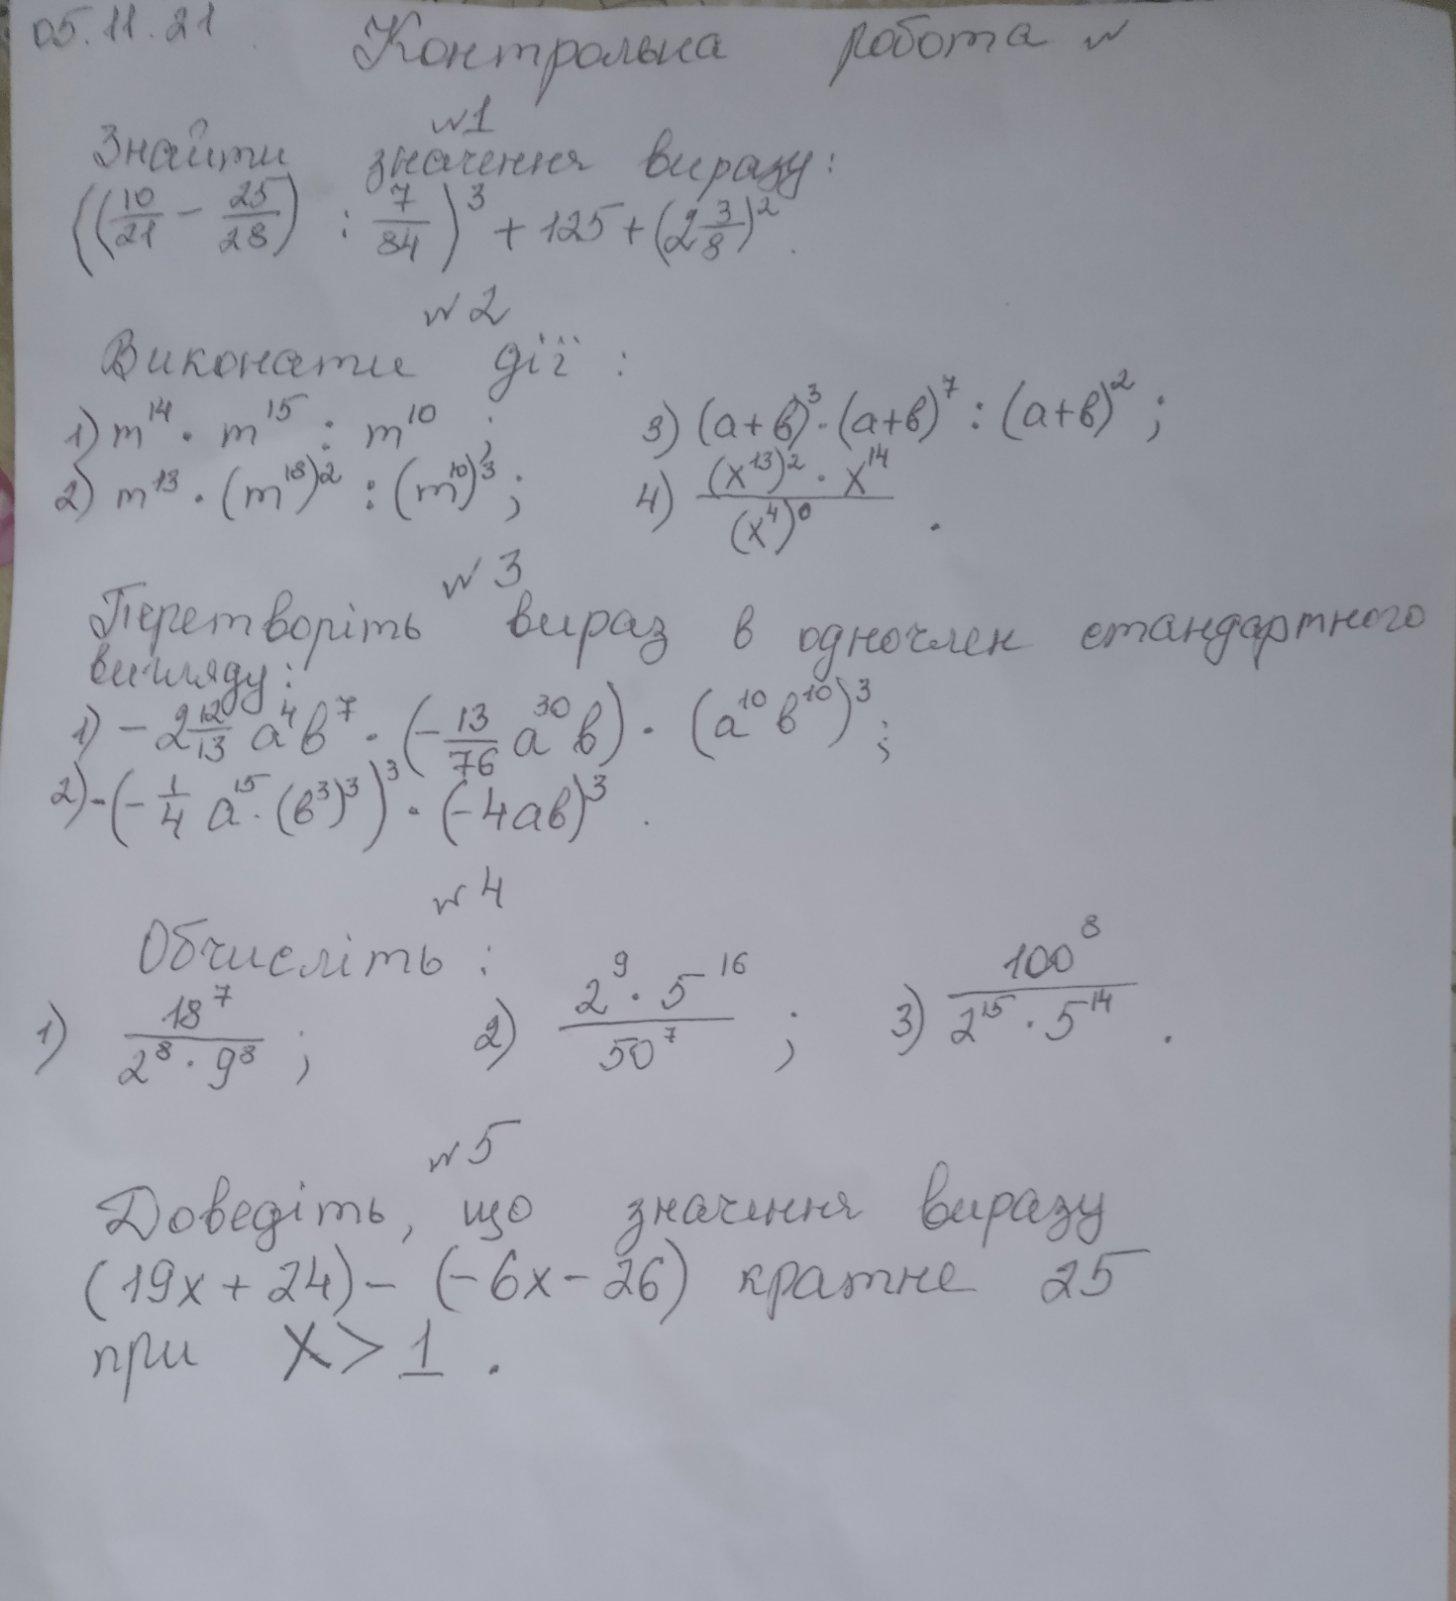 05.11.21
Контрольна робота №
№1
Знайти значення виразу:
((10/21 - 25/28) : 7/84)³ + 125 + (2 3/8)².
№2
Виконати дії:
1) m¹⁴ · m¹⁵ : m¹⁰; 3) (a+b)³ · (a+b)⁷ : (a+b)²;
2) m¹³ · (m¹⁸)² : (m¹⁰)³; 4) (x¹³)² · x¹⁴ / (x⁴)⁰.
№3
Перетворіть вираз в одночлен стандартного
вигляду:
1) -2 12/13 a⁴b⁷ · (-13/76 a³⁰b) · (a¹⁰b¹⁰)³;
2) -(-1/4 a¹⁵ · (b³)³)³ · (-4ab)³.
№4
Обчисліть:
1) 18⁷ / 2⁸ · 9⁸; 2) 2⁹ · 5¹⁶ / 50⁷; 3) 100⁸ / 2¹⁵ · 5¹⁴.
№5
Доведіть, що значення виразу
(19x + 24) - (-6x - 26) кратне 25
при x > 1.